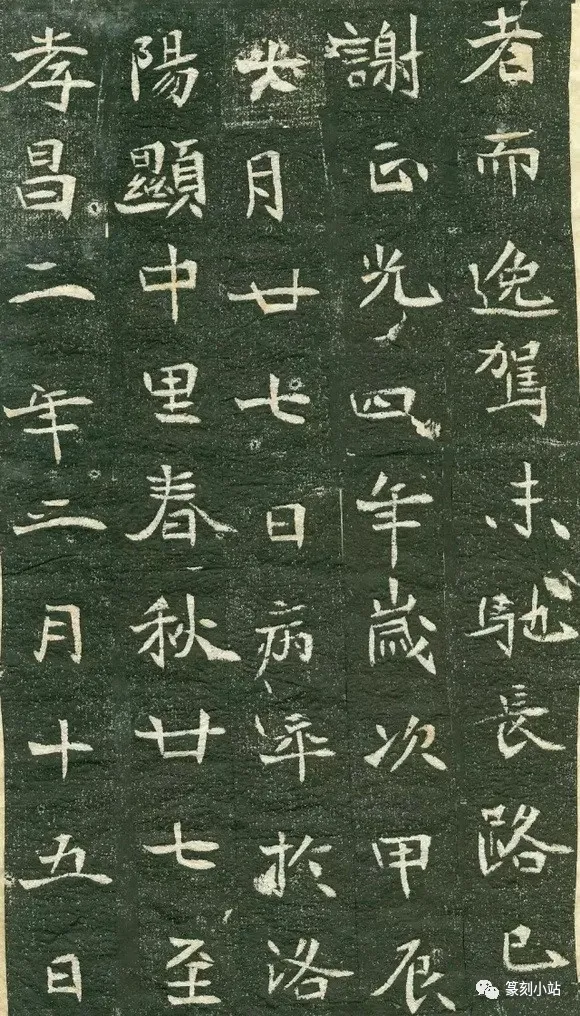 者而逸駕未馳長路已
謝正光四年歲次甲辰
六月廿七日病卒於洛
陽顯中里春秋廿七至
孝昌二年三月十五日
篆刻小站